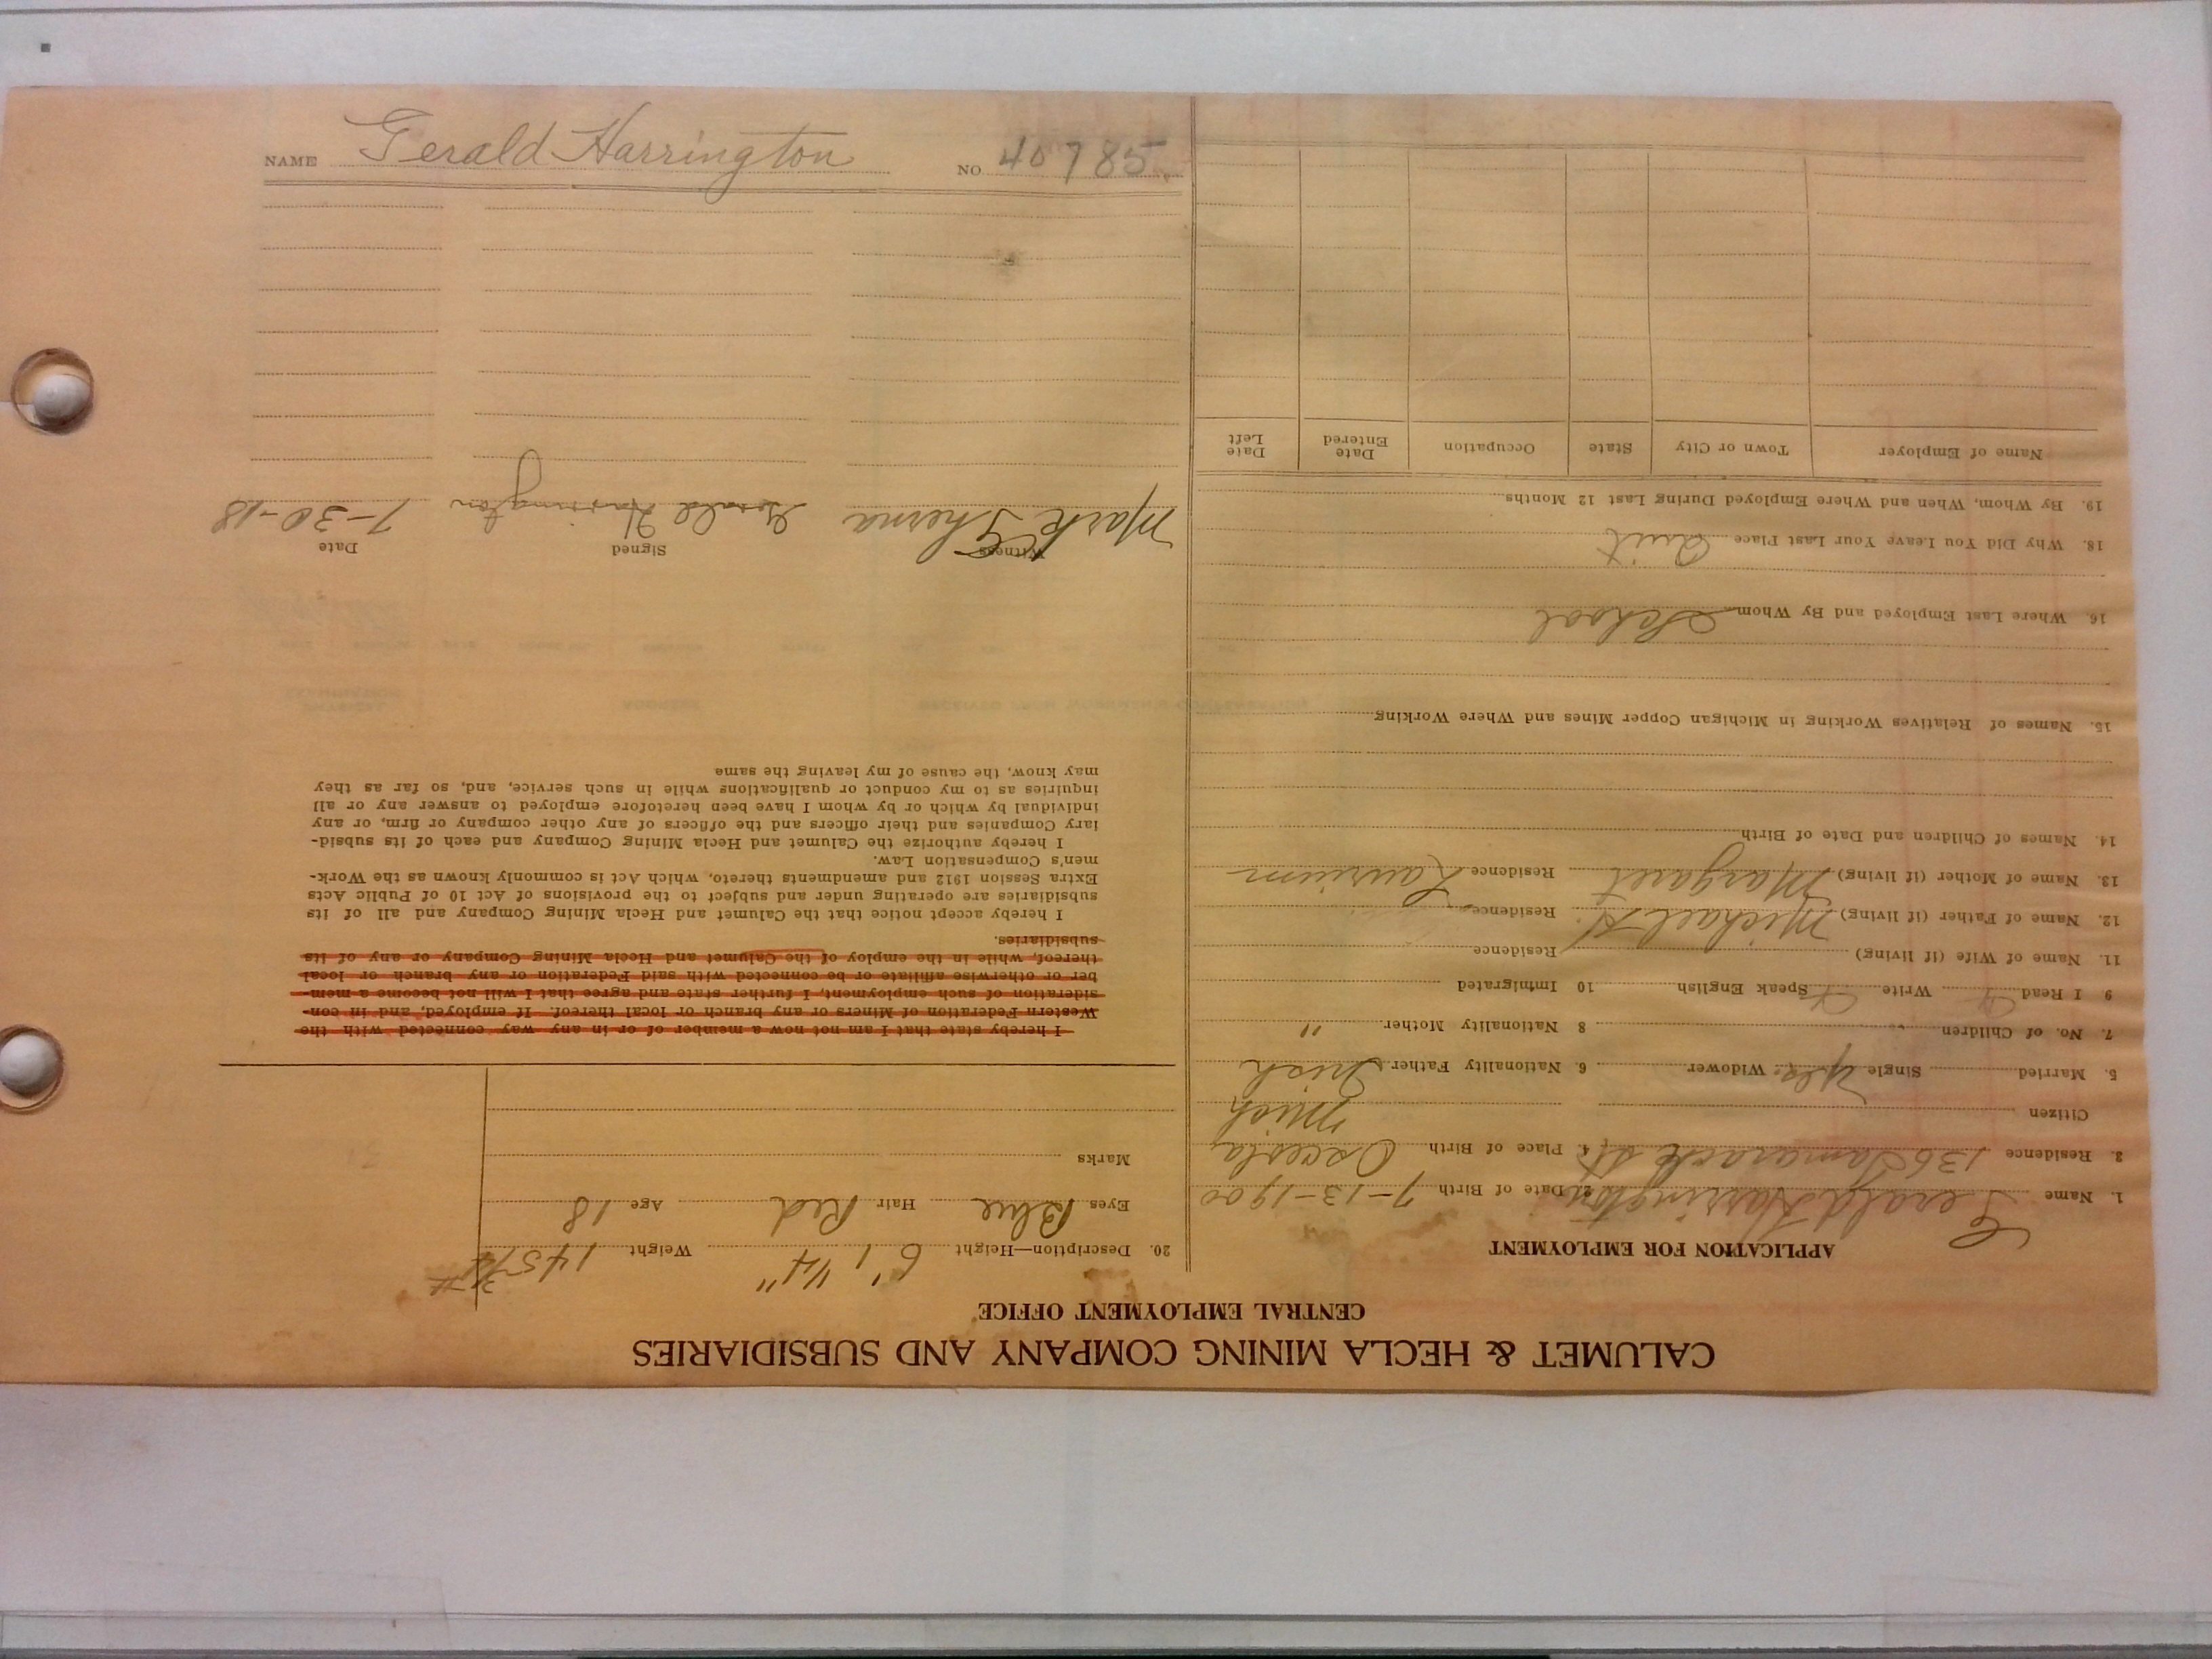 CALUMET & HECLA MINING COMPANY AND SUBSIDIARIES
CENTRAL EMPLOYMENT OFFICE
APPLICATION FOR EMPLOYMENT
1. Name Gerald Harrington 2. Date of Birth 7-13-1900
3. Residence 136 Tamarack St 4. Place of Birth Osceola
Mich
Citizen
5. Married Single Yes Widower 6. Nationality Father Irish
7. No. of Children 8 Nationality Mother "
9 I Read Write Speak English 10 Immigrated
11. Name of Wife (if living) Residence
12. Name of Father (if living) Michael H. Residence
13. Name of Mother (if living) Margaret Residence Laurium
14. Names of Children and Date of Birth
15. Names of Relatives Working in Michigan Copper Mines and Where Working
16. Where Last Employed and By Whom School
18. Why Did You Leave Your Last Place Quit
19. By Whom, When and Where Employed During Last 12 Months
Name of Employer Town or City State Occupation Date Entered Date Left
20. Description—Height 6' 1 1/4" Weight 145
Eyes Blue Hair Red Age 18
Marks
I hereby state that I am not now a member of or in any way connected with the
Western Federation of Miners or any branch or local thereof. If employed, and in con-
sideration of such employment, I further state and agree that I will not become a mem-
ber or otherwise affiliate or be connected with said Federation or any branch or local
thereof, while in the employ of the Calumet and Hecla Mining Company or any of its
subsidiaries.
I hereby accept notice that the Calumet and Hecla Mining Company and all of its
subsidiaries are operating under and subject to the provisions of Act 10 of Public Acts
Extra Session 1912 and amendments thereto, which Act is commonly known as the Work-
men's Compensation Law.
I hereby authorize the Calumet and Hecla Mining Company and each of its subsid-
iary Companies and their officers and the officers of any other company or firm, or any
individual by which or by whom I have been heretofore employed to answer any or all
inquiries as to my conduct or qualifications while in such service, and, so far as they
may know, the cause of my leaving the same
Witness Signed Date
Mark Gerald Harrington 7-30-18
NAME Gerald Harrington NO 40785